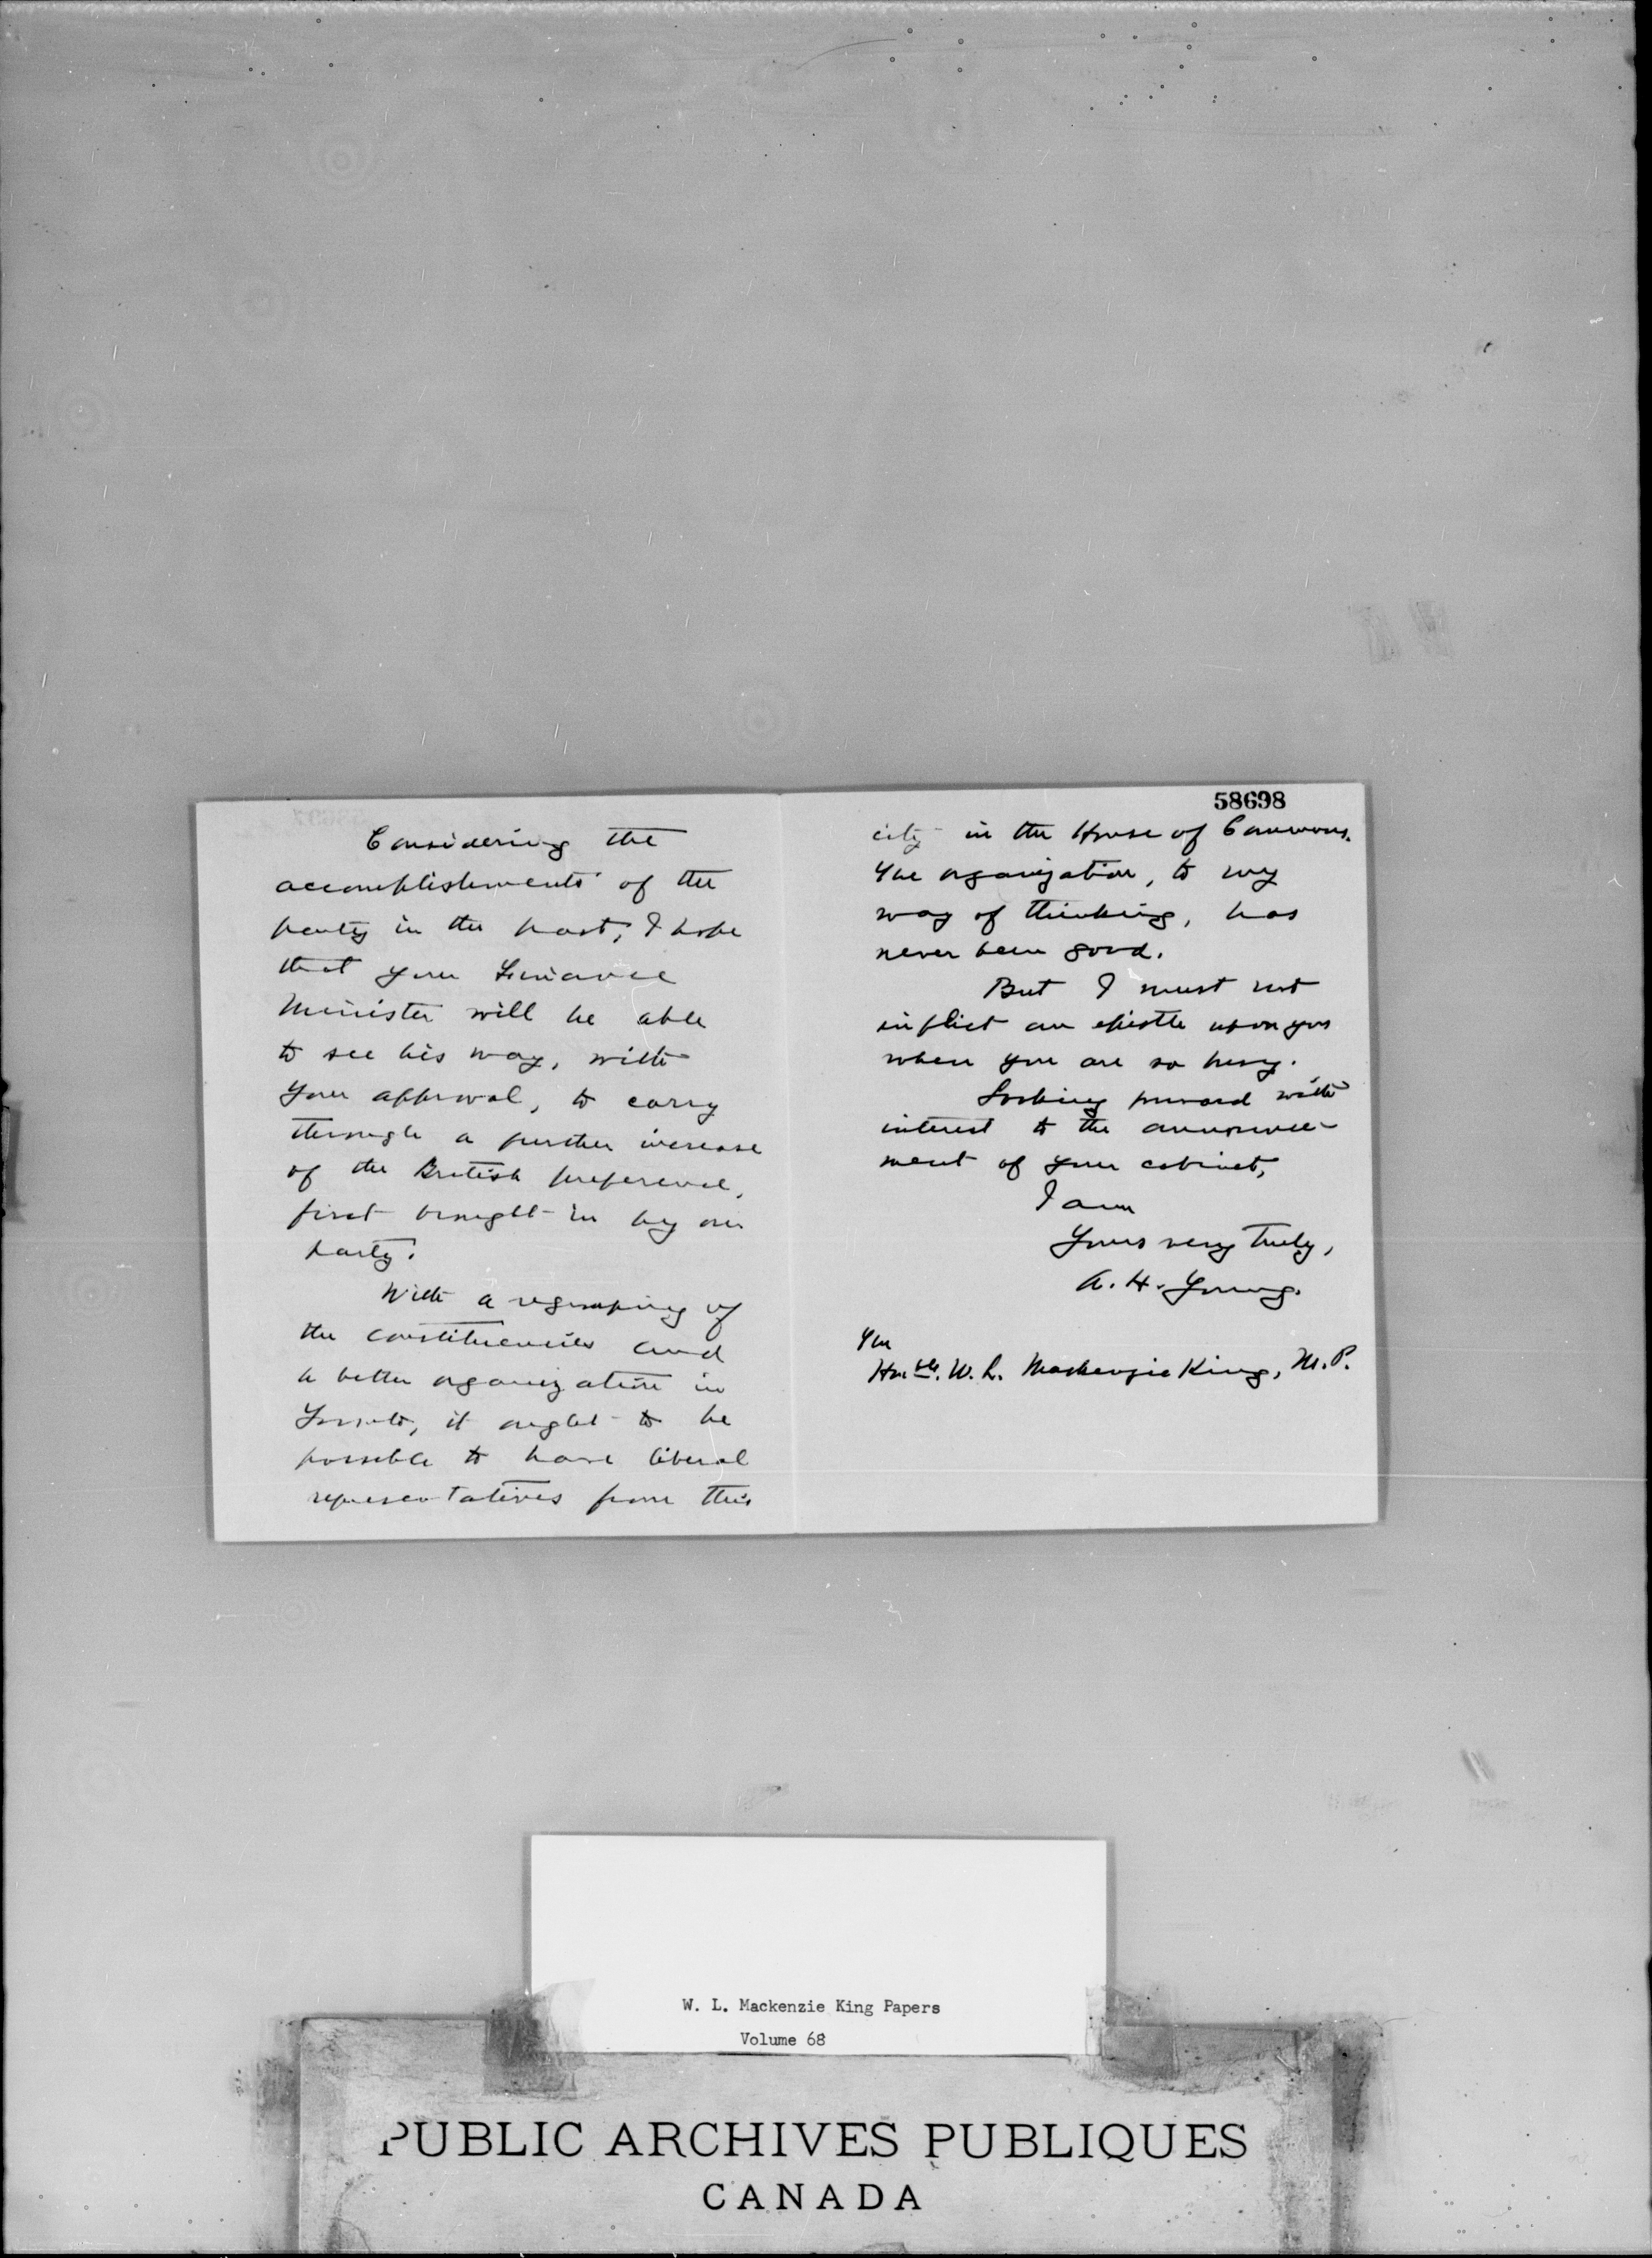 Considering the
accomplishments of the
party in the past, I hope
that your Finance
Minister will be able
to see his way, with
your approval, to carry
through a further increase
of the British preference,
first brought in by our
party.
With a regrouping of
the constituencies and
a better organization in
Toronto, it ought to be
possible to have liberal
representatives from this
58698
city in the House of Commons.
The organization, to my
way of thinking, has
never been good.
But I must not
inflict an epistle upon you
when you are so busy.
Looking forward with
interest to the announce-
ment of your cabinet,
I am
Yours very truly,
A. H. Young.
The
Honble. W. L. Mackenzie King, M.P.
W. L. Mackenzie King Papers
Volume 68
PUBLIC ARCHIVES PUBLIQUES
CANADA